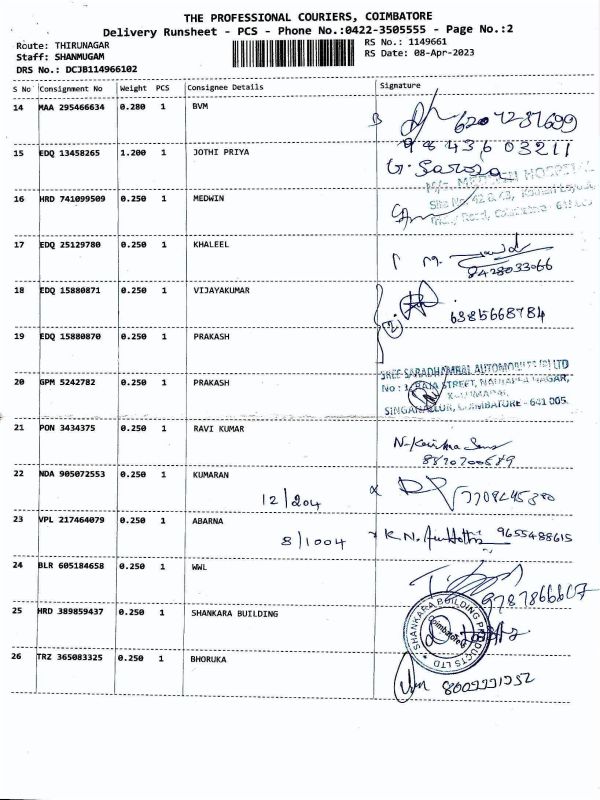 THE PROFESSIONAL COURIERS, COIMBATORE
Delivery Runsheet - PCS - Phone No.:0422-3505555 - Page No.:2
Route: THIRUNAGAR
Staff: SHANMUGAM
DRS No.: DCJB114966102
RS No.: 1149661
RS Date: 08-Apr-2023
S No Consignment No Weight PCS Consignee Details Signature
14 MAA 295466634 0.280 1 BVM
B 6207237699
15 EDQ 13458265 1.200 1 JOTHI PRIYA 9843603211
G. Saroja
16 HRD 741099509 0.250 1 MEDWIN
17 EDQ 25129780 0.250 1 KHALEEL
8428033066
18 EDQ 15880871 0.250 1 VIJAYAKUMAR
2 6385668784
19 EDQ 15880870 0.250 1 PRAKASH
20 GPM 5242782 0.250 1 PRAKASH
SREE SARADHAMBAL AUTOMOBILES (P) LTD
No : 1, RAJA STREET,
SINGANALLUR, COIMBATORE - 641 005.
21 PON 3434375 0.250 1 RAVI KUMAR
22 NDA 905072553 0.250 1 KUMARAN
12/204
23 VPL 217464079 0.250 1 ABARNA
8/1004 K.N. 9655488615
24 BLR 605184658 0.250 1 WWL
25 HRD 389859437 0.250 1 SHANKARA BUILDING
SHANKARA BUILDING PRODUCTS LTD
Coimbatore
26 TRZ 365083325 0.250 1 BHORUKA